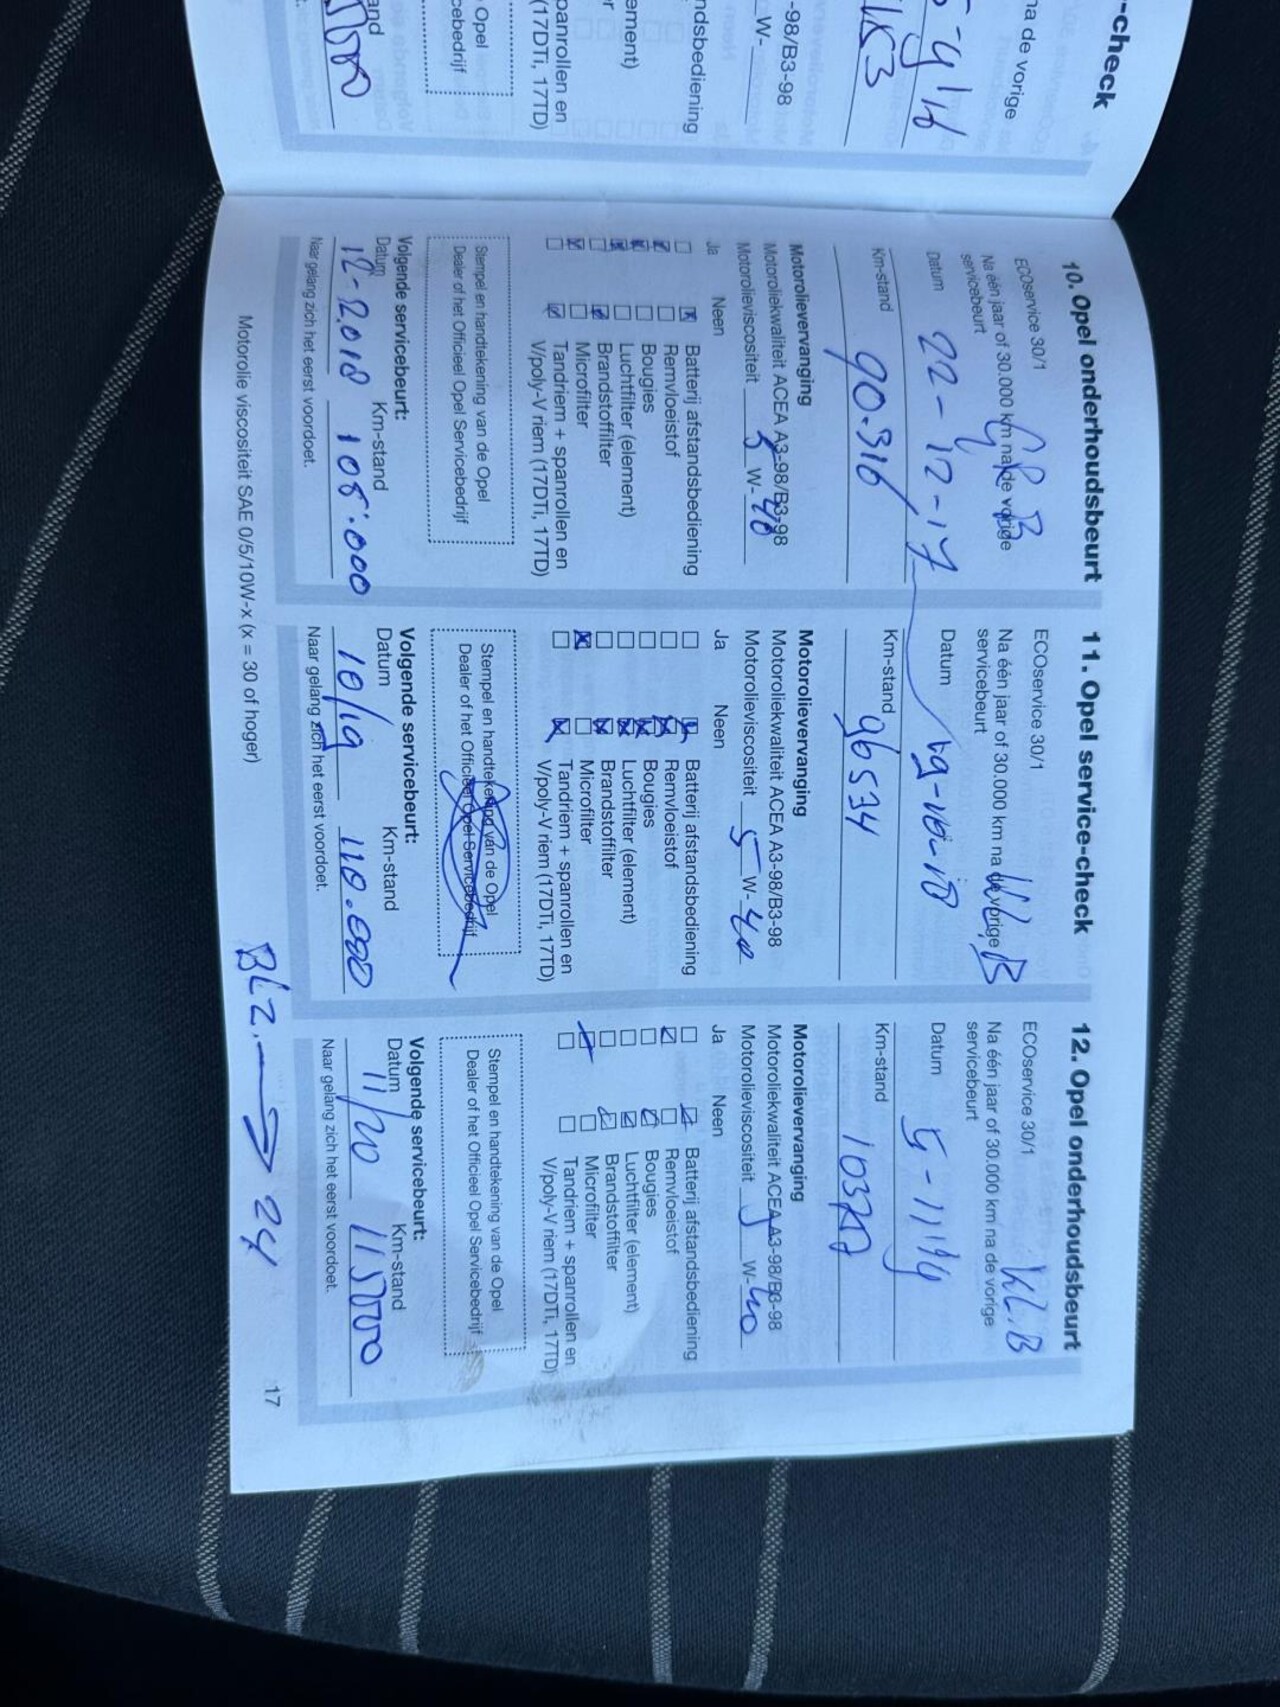 -check
na de vorige
-98/B3-98
W-
ndsbediening
ement)
panrollen en
(17DTi, 17TD)
Opel
cebedrijf
and
10. Opel onderhoudsbeurt
ECOservice 30/1
Na één jaar of 30.000 km na de vorige
servicebeurt
Datum 22-12-17
Km-stand 90.316
Motorolievervanging
Motoroliekwaliteit ACEA A3-98/B3-98
Motorolieviscositeit 5 W-40
Ja Neen
Batterij afstandsbediening
Remvloeistof
Bougies
Luchtfilter (element)
Brandstoffilter
Microfilter
Tandriem + spanrollen en
V/poly-V riem (17DTi, 17TD)
Stempel en handtekening van de Opel
Dealer of het Officieel Opel Servicebedrijf
Volgende servicebeurt:
Datum Km-stand
12-2018 105.000
Naar gelang zich het eerst voordoet.
11. Opel service-check
ECOservice 30/1
Na één jaar of 30.000 km na de vorige
servicebeurt
Datum
Km-stand 96534
Motorolievervanging
Motoroliekwaliteit ACEA A3-98/B3-98
Motorolieviscositeit 5 W-40
Ja Neen
Batterij afstandsbediening
Remvloeistof
Bougies
Luchtfilter (element)
Brandstoffilter
Microfilter
Tandriem + spanrollen en
V/poly-V riem (17DTi, 17TD)
Stempel en handtekening van de Opel
Dealer of het Officieel Opel Servicebedrijf
Volgende servicebeurt:
Datum Km-stand
10/19 110.000
Naar gelang zich het eerst voordoet.
12. Opel onderhoudsbeurt
ECOservice 30/1
Na één jaar of 30.000 km na de vorige
servicebeurt
Datum 5-11-19
Km-stand
Motorolievervanging
Motoroliekwaliteit ACEA A3-98/B3-98
Motorolieviscositeit 5 W-40
Ja Neen
Batterij afstandsbediening
Remvloeistof
Bougies
Luchtfilter (element)
Brandstoffilter
Microfilter
Tandriem + spanrollen en
V/poly-V riem (17DTi, 17TD)
Stempel en handtekening van de Opel
Dealer of het Officieel Opel Servicebedrijf
Volgende servicebeurt:
Datum Km-stand
11/20 115000
Naar gelang zich het eerst voordoet.
Motorolie viscositeit SAE 0/5/10W-x (x = 30 of hoger)
BLZ. → 24
17